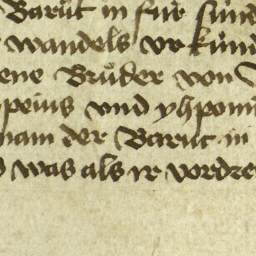 Barut in für sünd
wandels vrkünd
ene Brůder von
peius vnd yhpomi
nam der Barut in
was als ir vordre